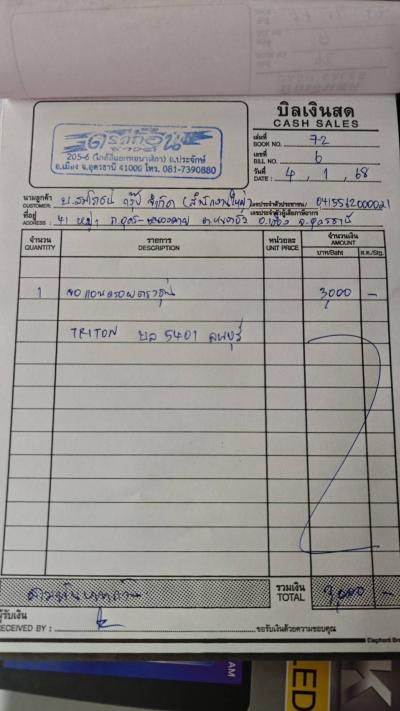 บิลเงินสด
CASH SALES
205-6 (ใกล้สี่แยกหอนาฬิกา) ถ.ประจักษ์
อ.เมือง จ.อุดรธานี 41000 โทร. 081-7390880
เล่มที่
BOOK NO. 72
เลขที่
BILL NO. 6
วันที่
DATE : 4, 1, 68
นามลูกค้า
CUSTOMER: จำกัด (สำนักงานใหญ่) เลขประจำตัวประชาชน/
เลขประจำตัวผู้เสียภาษีอากร
ที่อยู่
ADDRESS : 41 หมู่ จ.อุดรธานี
จำนวน รายการ หน่วยละ จำนวนเงิน
QUANTITY DESCRIPTION UNIT PRICE AMOUNT
บาท/Baht ส.ต./Stg.
1 3,000 -
TRITON 5401 ลพบุรี
สามพันบาทถ้วน รวมเงิน TOTAL 3,000 -
ผู้รับเงิน
RECEIVED BY : ขอรับเงินด้วยความขอบคุณ
AM
LED
K